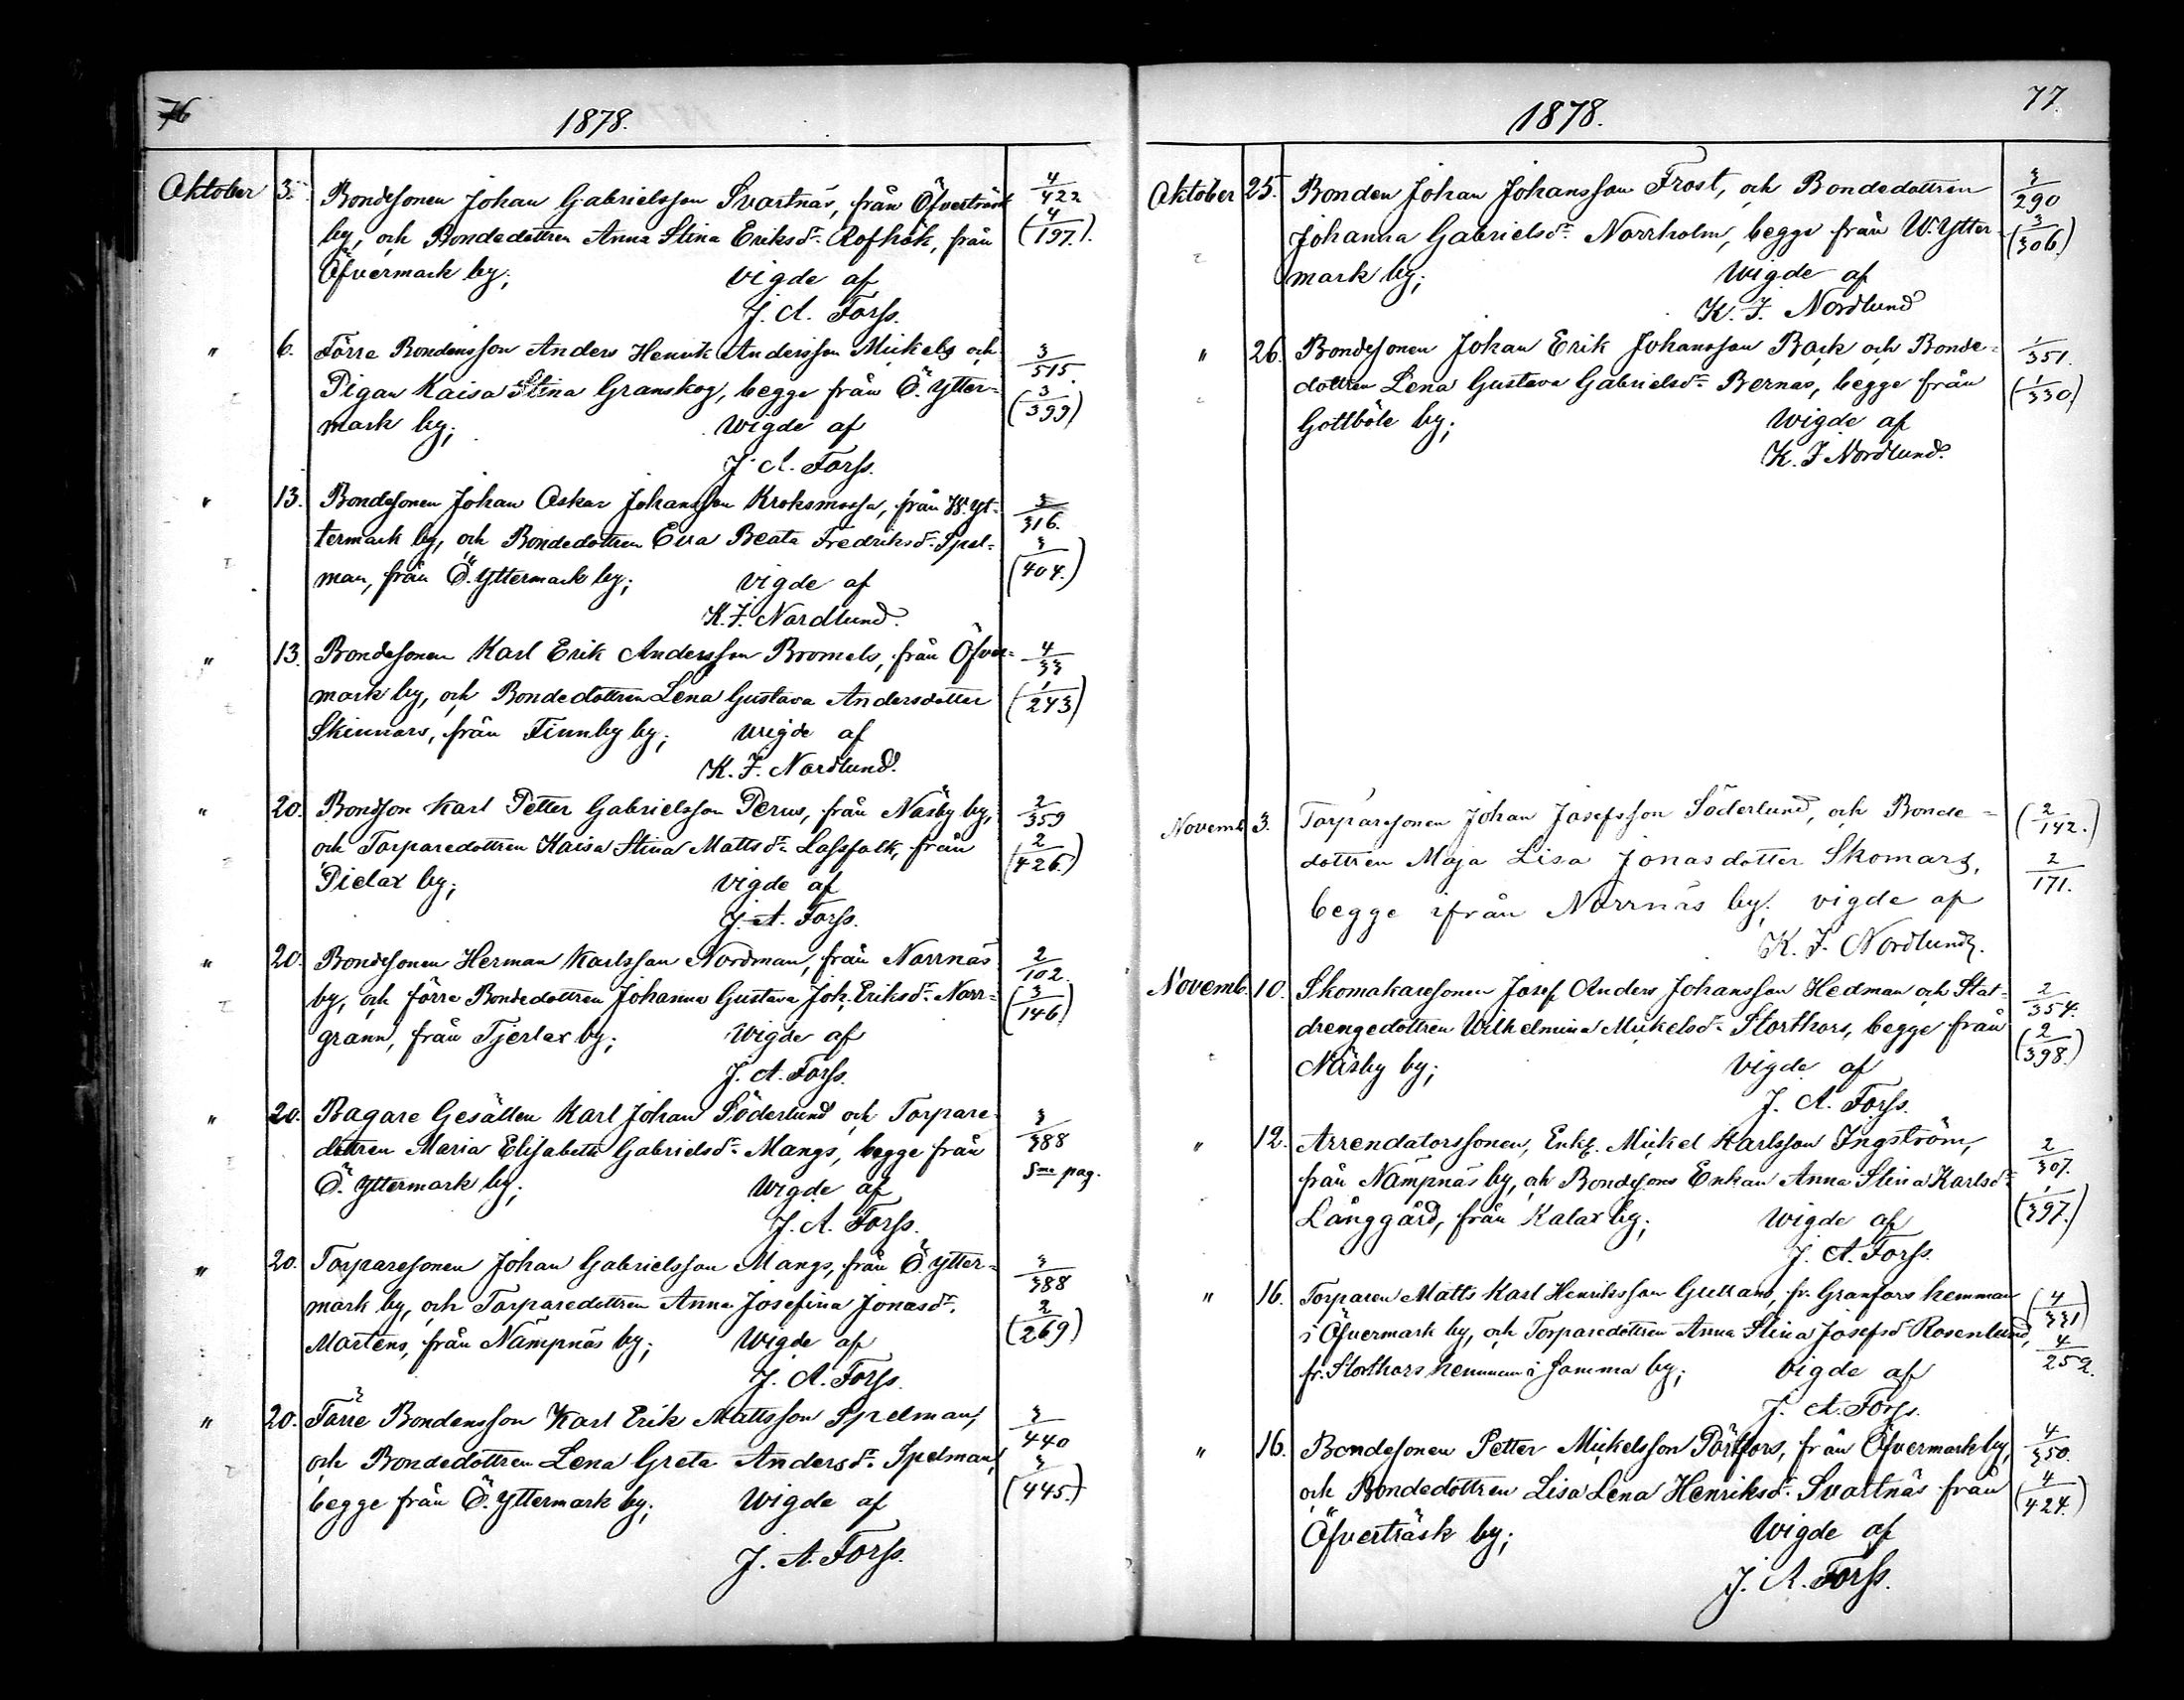 76
1878.
Oktober 3. Bondesonen Johan Gabrielsson Svartnäs, från Öfverträsk 4/422
by, och Bondedottren Anna Stina Eriksdr. Rofhök, från (4/197.)
Öfvermark by; vigde af
J. A. Forss.
" 6. Förre Bondensson Anders Henrik Andersson Mickels och 3/515.
Pigan Kaisa Stina Granskog, begge från Ö. Ytter= (3/399)
mark by; Wigde af
J. A. Forss.
" 13. Bondesonen Johan Oskar Johansson Kroksmossa, från W. Yt= 3/316.
termark by, och Bondedottren Eva Beata Fredriksdr. Spel= (3/404.)
man, från Ö. Yttermark by; vigde af
K. J. Nordlund.
" 13. Bondesonen Karl Erik Andersson Bromels, från Öfver= 4/33
mark by, och Bondedottren Lena Gustava Andersdotter (1/243)
Skinnars, från Finnby by; wigde af
K. J. Nordlund.
" 20. Bondson Karl Petter Gabrielsson Perus, från Näsby by, 2/359
och Torparedottren Kaisa Stina Mattsdr. Lassfolk, från (2/426.)
Pielax by; vigde af
J. A. Forss.
" 20. Bondesonen Herman Karlsson Nordman, från Norrnäs 2/102.
by, och förre Bondedottren Johanna Gustava Joh. Eriksdr. Norr= (3/146)
grann, från Tjerlax by; Wigde af
J. A. Forss.
" 20. Bagare Gesällen Karl Johan Söderlund och Torpare= 3/388
dottren Maria Elisabeth Gabrielsdr. Mangs, begge från Sme pag.
Ö. Yttermark by; Wigde af
J. A. Forss.
" 20. Torparesonen Johan Gabrielsson Mangs, från Ö. Ytter= 3/388
mark by, och Torparedottren Anna Josefina Jonasdr. (2/269)
Mårtens, från Nämpnäs by; Wigde af
J. A. Forss.
" 20. Förre Bondensson Karl Erik Mattsson Spelman, 3/440
och Bondedottren Lena Greta Andersdr. Spelman, (3/445.)
begge från Ö. Yttermark by; Wigde af
J. A. Forss.
77.
1878.
Oktober 25. Bonden Johan Johansson Frost, och Bondedottren 3/290
Johanna Gabrielsdr. Norrholm, begge från W. Ytter= (3/306.)
mark by; Wigde af
K. J. Nordlund
" 26. Bondesonen Johan Erik Johansson Back och Bonde= 1/351.
dottren Lena Gustava Gabrielsdr. Bernas, begge från (1/330.)
Gottböle by; Wigde af
K. J Nordlund.
Novemb. 3. Torparesonen Johan Josefsson Söderlund, och Bonde= (2/142.)
dottren Maja Lisa Jonasdotter Skomars, 2/171.
begge ifrån Norrnäs by; vigde af
K. J. Nordlund.
Novemb. 10. Skomakaresonen Josef Anders Johansson Hedman och Stat= 2/354.
drengedottren Wilhelmina Mickelsdr. Storthors, begge från (2/398.)
Näsby by; Vigde af
J. A. Forss.
" 12. Arrendatorssonen, Enkl. Mickel Karlsson Ingström, 2/307.
från Nämpnäs by, och Bondesons Enkan Anna Stina Karlsdr. (1/397.)
Långgård, från Kalax by; Wigde af
J. A. Forss.
" 16. Torparen Matts Karl Henriksson Gullans, fr. Granfors hemman (4/331)
i Öfvermark by, och Torparedottren Anna Stina Josefsdr Rosenlund, 4/252.
fr. Storthors hemman i Samma by; vigde af
J. A. Forss.
" 16. Bondesonen Petter Mickelsson Pörtfors, från Öfvermark by, 4/350.
och Bondedottren Lisa Lena Henriksdr. Svartnäs från (4/424.)
Öfverträsk by; Wigde af
J. A. Forss.